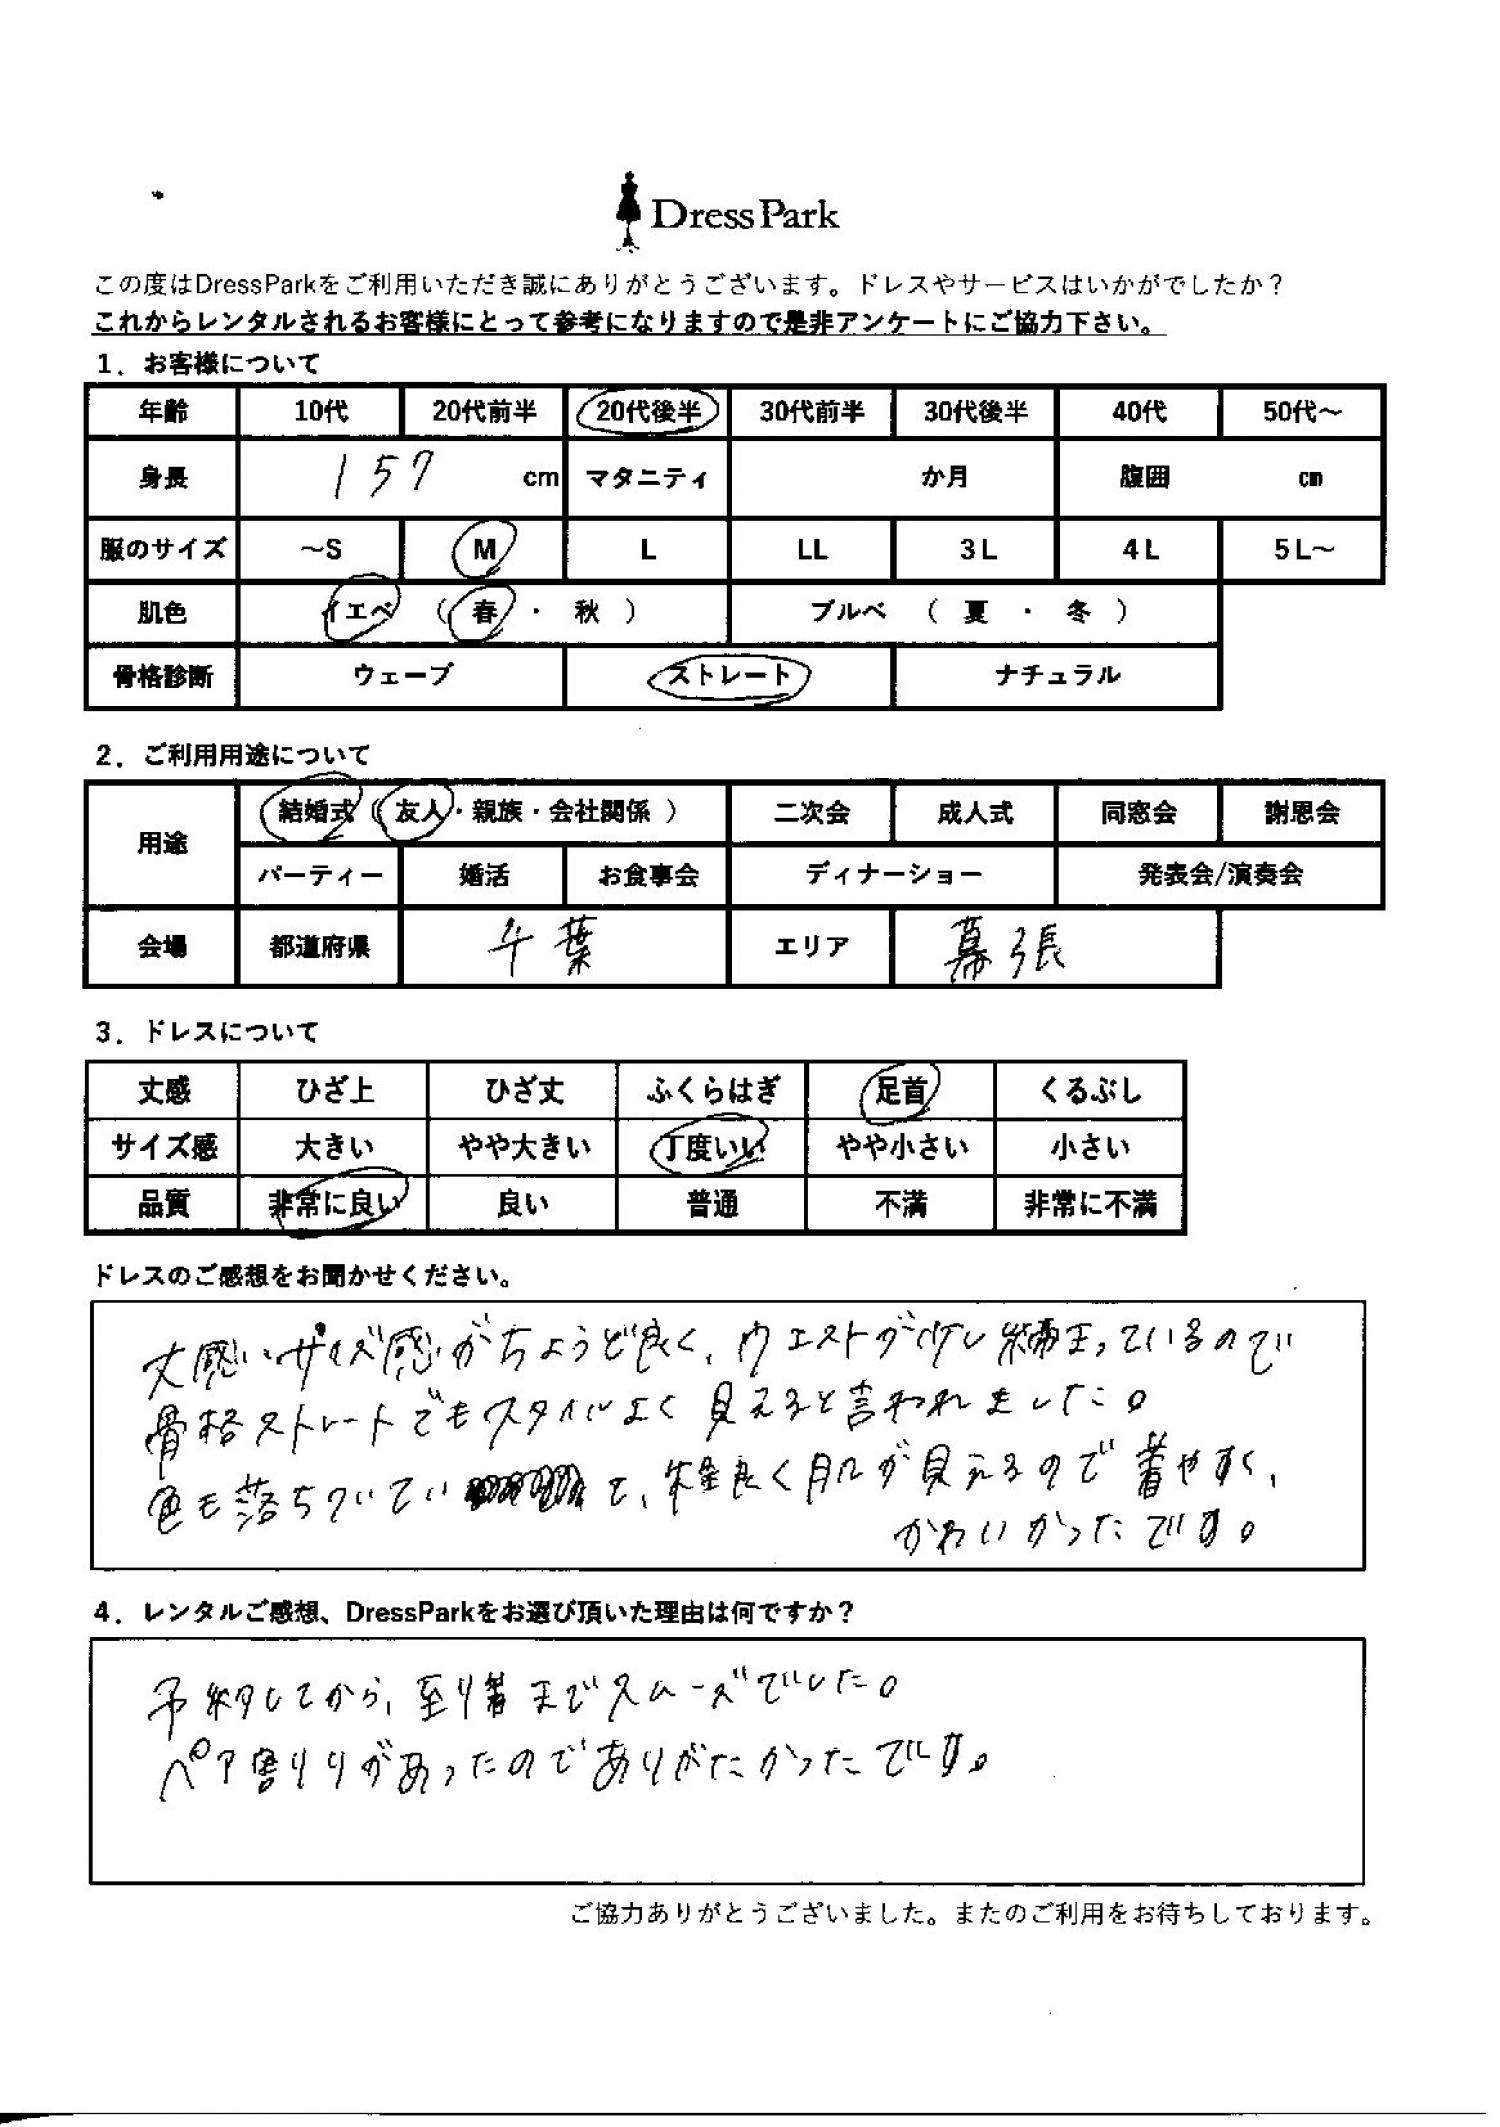 DressPark
この度はDressParkをご利用いただき誠にありがとうございます。ドレスやサービスはいかがでしたか？
これからレンタルされるお客様にとって参考になりますので是非アンケートにご協力下さい。
1．お客様について
年齢 10代 20代前半 20代後半 30代前半 30代後半 40代 50代～
身長 157 cm マタニティ か月 腹囲 cm
服のサイズ ～S M L LL 3L 4L 5L～
肌色 イエベ （ 春 ・ 秋 ） ブルベ （ 夏 ・ 冬 ）
骨格診断 ウェーブ ストレート ナチュラル
2．ご利用用途について
用途 結婚式（ 友人・親族・会社関係 ） 二次会 成人式 同窓会 謝恩会
パーティー 婚活 お食事会 ディナーショー 発表会/演奏会
会場 都道府県 千葉 エリア 幕張
3．ドレスについて
丈感 ひざ上 ひざ丈 ふくらはぎ 足首 くるぶし
サイズ感 大きい やや大きい 丁度いい やや小さい 小さい
品質 非常に良い 良い 普通 不満 非常に不満
ドレスのご感想をお聞かせください。
丈感、サイズ感がちょうど良く、ウエストが少し締まっているので
骨格ストレートでもスタイルよく見えると言われました。
色も落ちついていて、程良く肌が見えるので着やすく、
かわいかったです。
4．レンタルご感想、DressParkをお選び頂いた理由は何ですか？
予約してから、到着までスムーズでした。
ペア割りがあったのでありがたかったです。
ご協力ありがとうございました。またのご利用をお待ちしております。